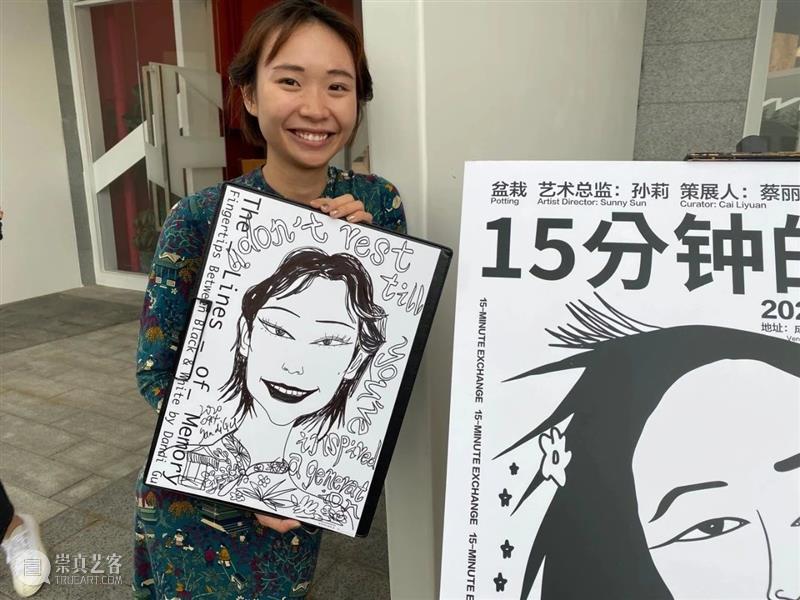 The _ Lines _ of _ Memory
Fingertips Between Black & White by Dandi Gu
don't rest
till
you've
inspired
a generat
盆栽 艺术总监：孙莉 策展人：蔡丽
Potting Artist Director: Sunny Sun Curator: Cai Liyuan
15分钟的
202
地址：成
Ven
15-MINUTE EXCHANGE 15-MINUTE EXCHANGE 15-MINUTE
崇真艺客
TRUEART.COM